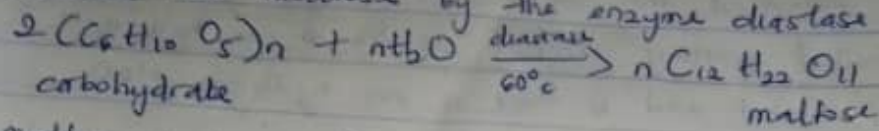 by the enzyme diastase
2 (C₆H₁₀O₅)n + nH₂O diastase/60°c > n C₁₂ H₂₂ O₁₁
carbohydrate maltose